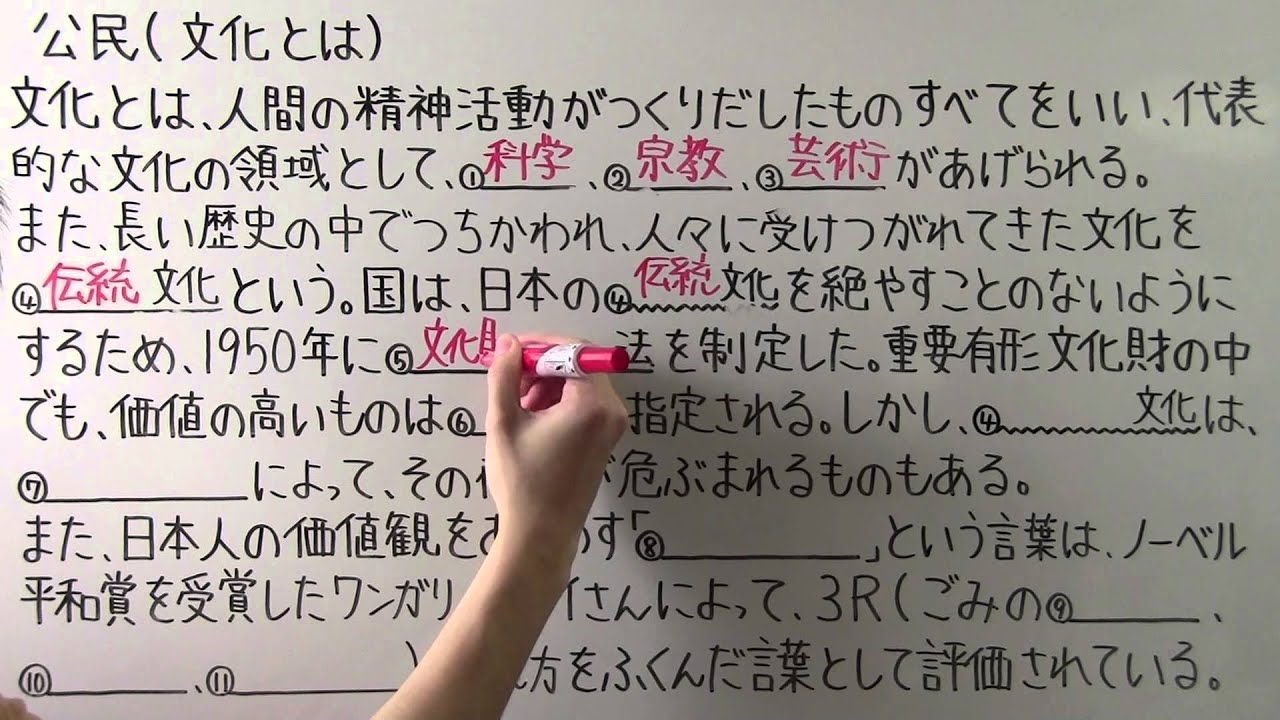 公民(文化とは)
文化とは、人間の精神活動がつくりだしたものすべてをいい、代表
的な文化の領域として、①科学、②宗教、③芸術があげられる。
また、長い歴史の中でつちかわれ、人々に受けつがれてきた文化を
④伝統文化という。国は、日本の④伝統文化を絶やすことのないように
するため、1950年に⑤文化財法を制定した。重要有形文化財の中
でも、価値の高いものは⑥指定される。しかし、④文化は、
⑦によって、その危ぶまれるものもある。
また、日本人の価値観をす「⑧」という言葉は、ノーベル
平和賞を受賞したワンガリイさんによって、3R(ごみの⑨、
⑩、⑪)方をふくんだ言葉として評価されている。